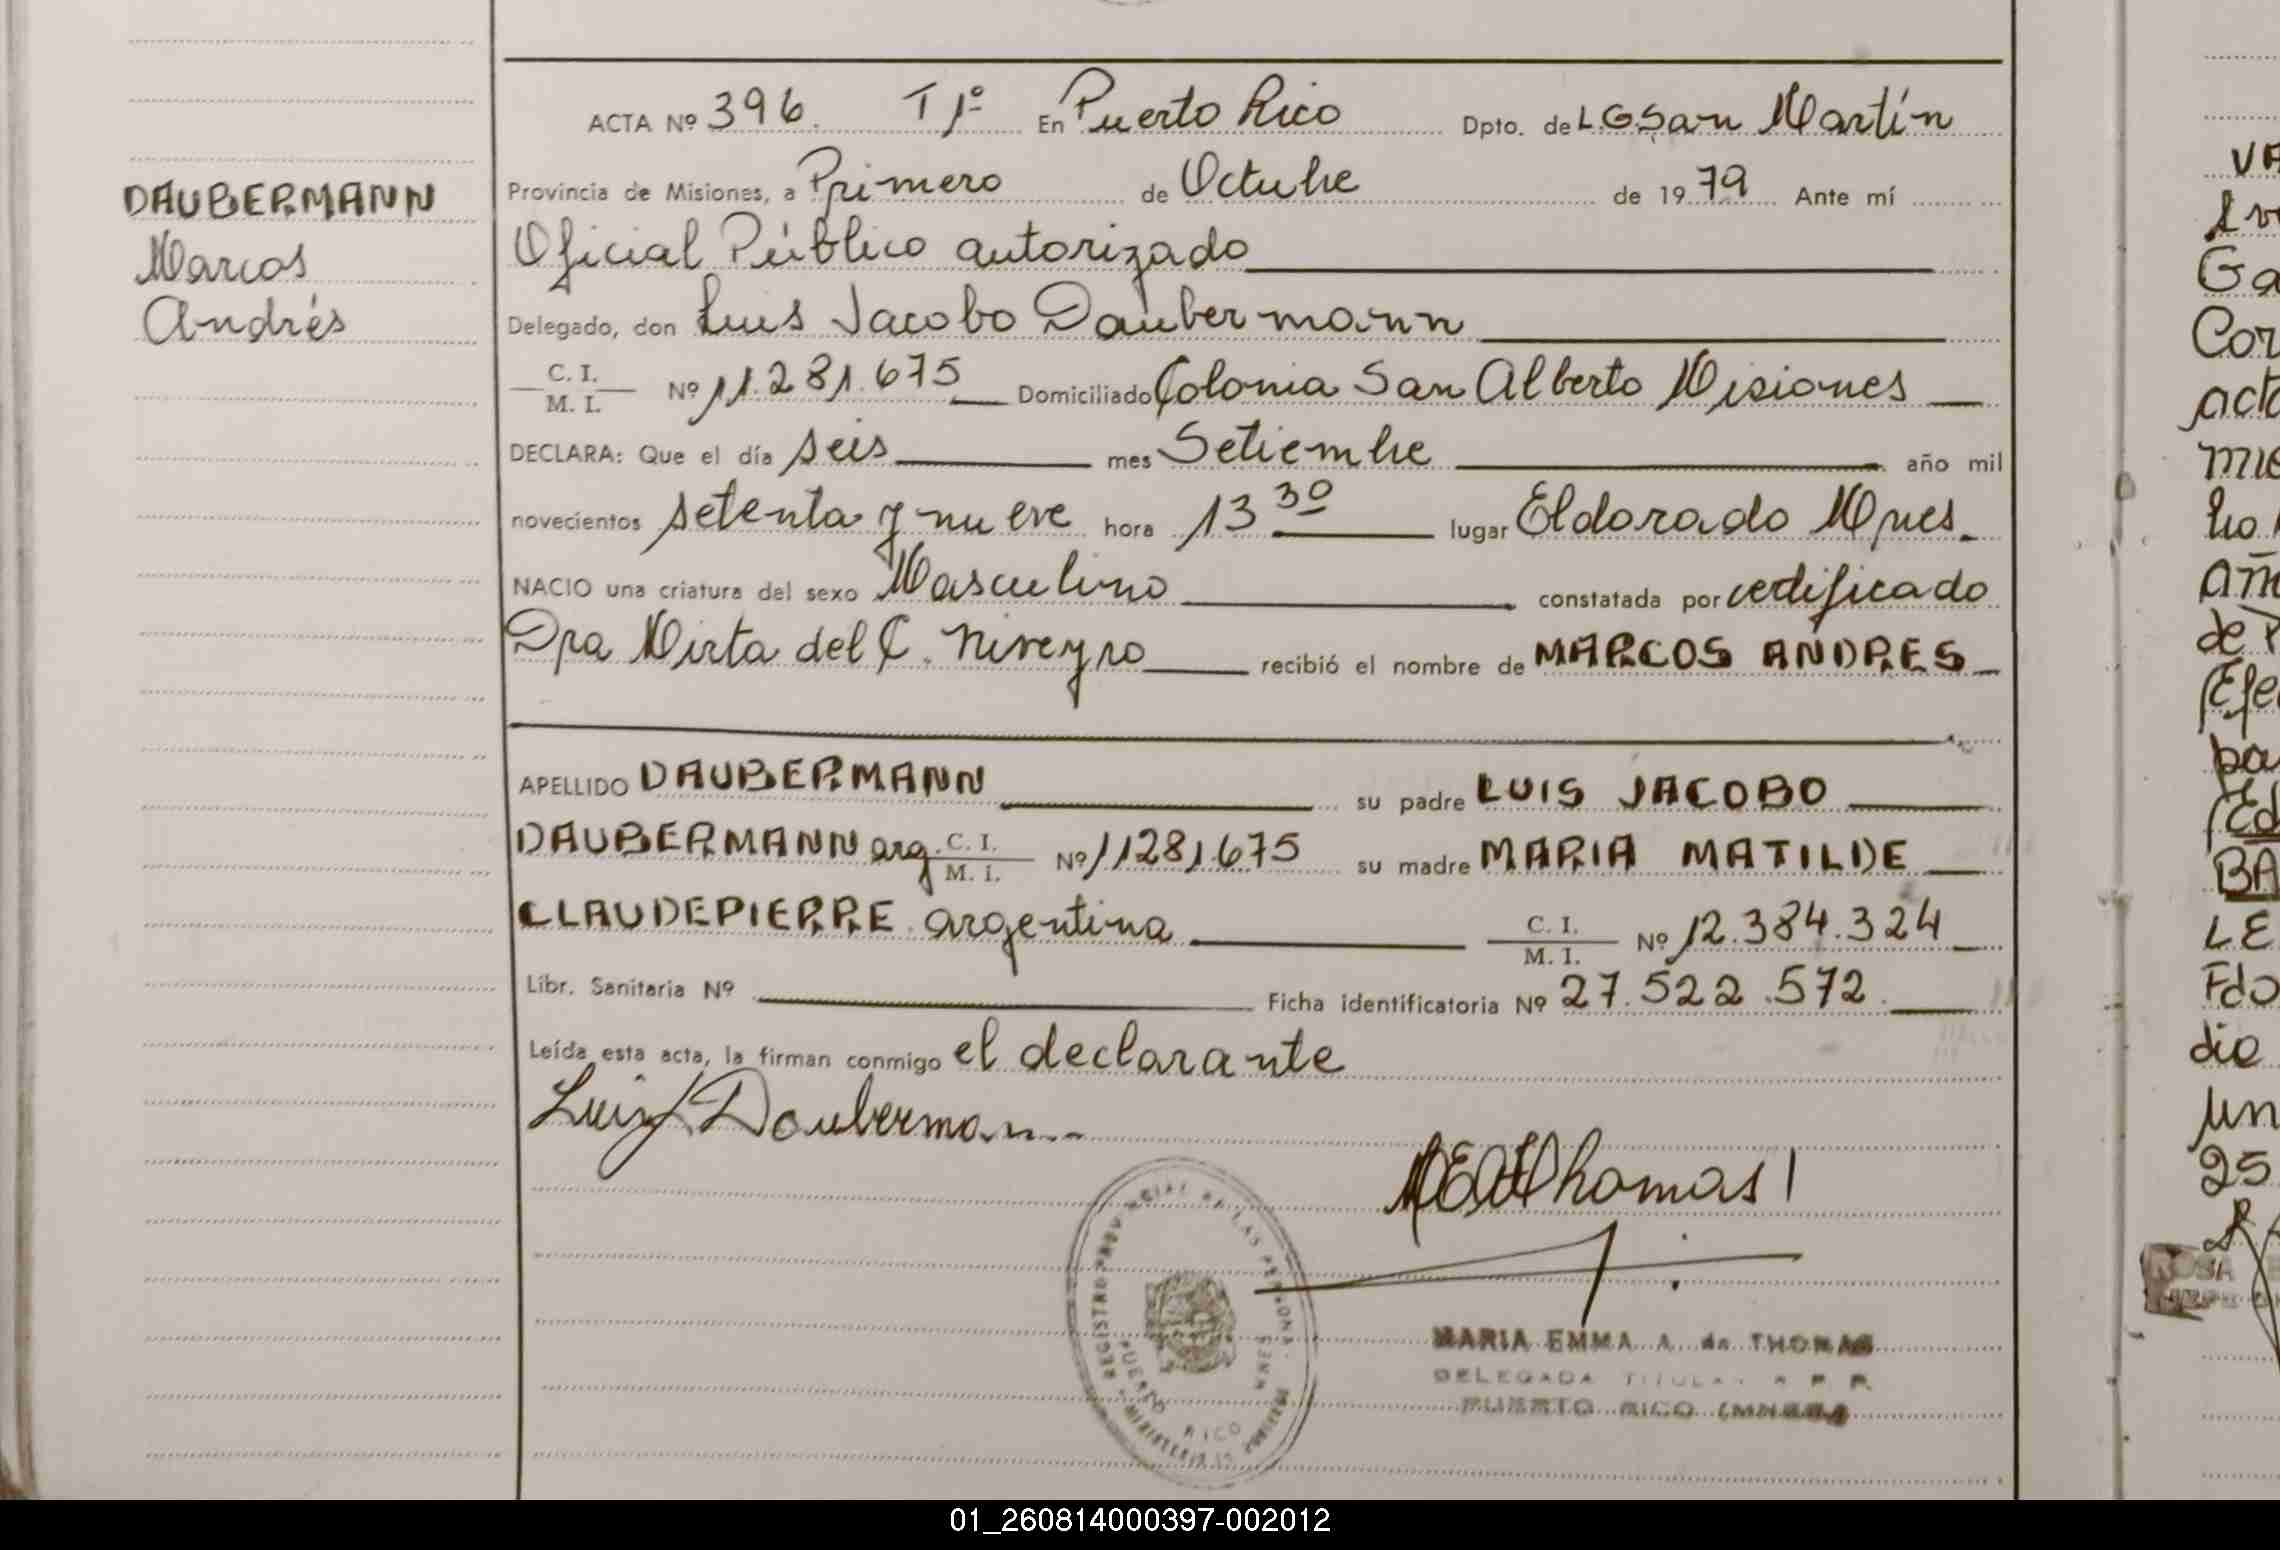 DAUBERMANN
Marcos
Andrés
ACTA Nº 396. T 1º En Puerto Rico Dpto. de L.G.San Martín
Provincia de Misiones, a Primero de Octubre de 1979 Ante mí
Oficial Público autorizado
Delegado, don Luis Jacobo Daubermann
C. I.
M. I. Nº 11.281.675 Domiciliado Colonia San Alberto Misiones
DECLARA: Que el día seis mes Setiembre año mil
novecientos setenta y nueve hora 13 30 lugar Eldorado Mnes.
NACIO una criatura del sexo Masculino constatada por certificado
Dra Mirta del C. Niveyro recibió el nombre de MARCOS ANDRES
APELLIDO DAUBERMANN su padre LUIS JACOBO
DAUBERMANN arg. C. I.
M. I. Nº 11281.675 su madre MARIA MATILDE
CLAUDEPIERRE argentina C. I.
M. I. Nº 12.384.324
Libr. Sanitaria Nº Ficha identificatoria Nº 27.522.572.
Leída esta acta, la firman conmigo el declarante
Luis J Daubermann
Thomas
REGISTRO DE LAS PERSONAS
PUERTO RICO
MARIA EMMA A. de THOMAS
DELEGADA TITULAR R. P. P.
PUERTO RICO (MNES)
VA
Ga
Cor
acta
mie
de P
(Efe
pa
(Ed
BA
LE
Fdo
dia
un
25
ROSA
01_260814000397-002012